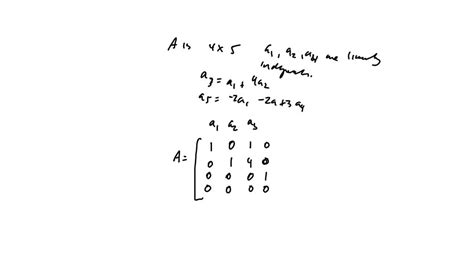 A is 4x5 a1, a2, a4 are linearly
independent.
a3 = a1 + 4a2
a5 = -2a1 -2a+3 a4
a1 a2 a3
A = [ 1 0 1 0
0 1 4 0
0 0 0 1
0 0 0 0